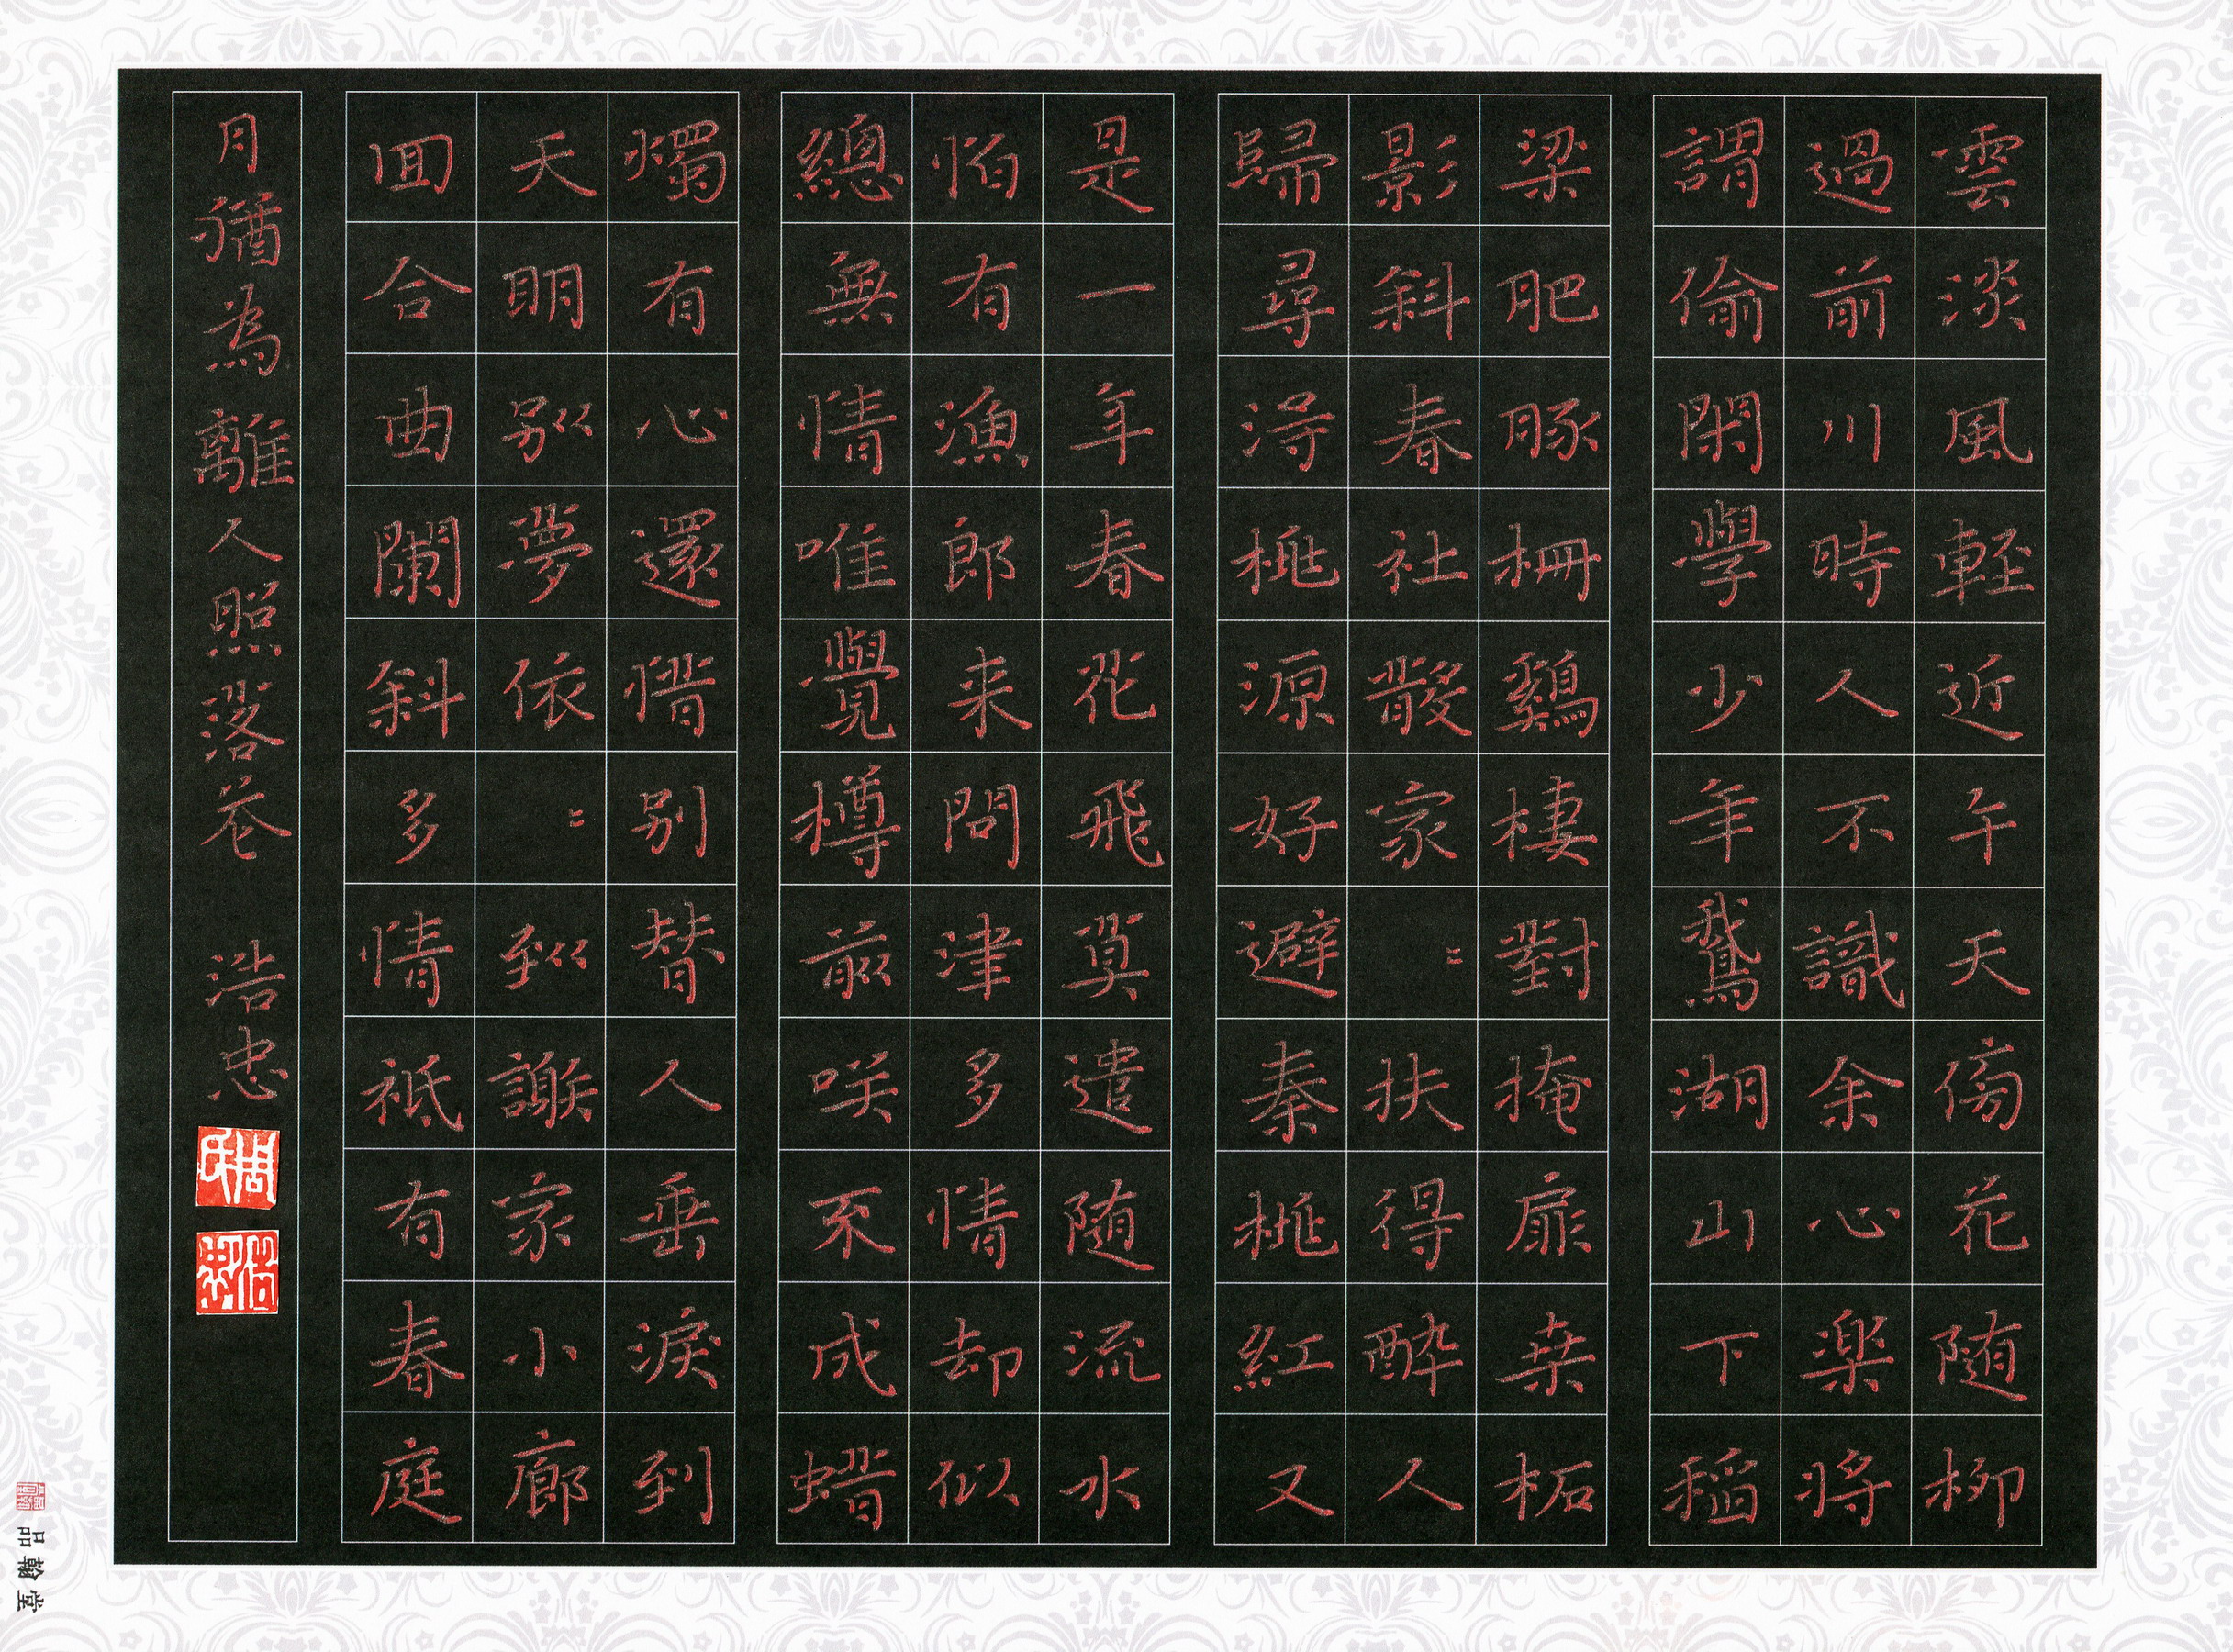 雲淡風軽近午天傍花随柳
過前川時人不識余心楽将
謂偷閑學少年鵞湖山下稲
梁肥豚柵鷄棲對掩扉桒柘
影斜春社散家〻扶得醉人
歸尋得桃源好避秦桃紅又
是一年春花飛莫遣随流水
怕有漁郎来問津多情却似
總無情唯覺樽前咲不成蠟
燭有心還惜別替人垂淚到
天明別後夢依〻到謝家小廊
回合曲闌斜多情祗有春庭
月猶為離人照落花 浩忠
周氏
浩忠
品翰堂